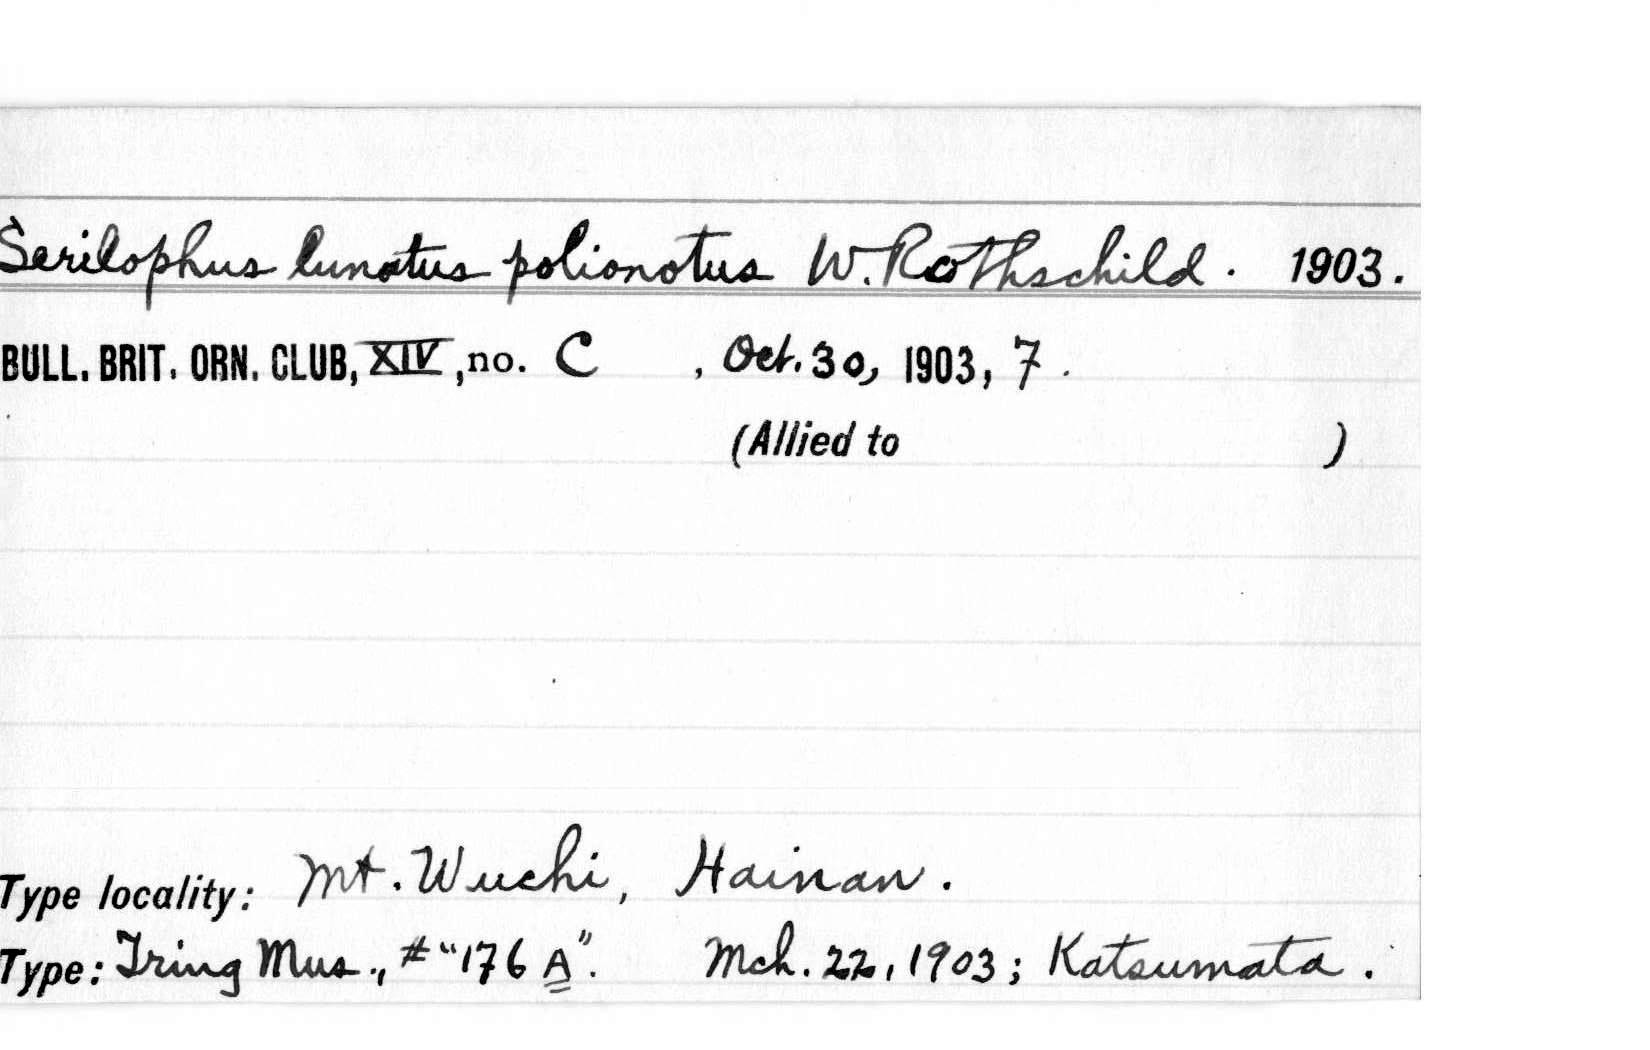 Serilophus lunatus polionotus W. Rothschild. 1903.
BULL. BRIT. ORN. CLUB, XIV, no. C , Oct. 30, 1903, 7.
(Allied to )
Type locality: Mt. Wuchi, Hainan.
Type: Tring Mus., # "176 A". Mch. 22, 1903; Katsumata.